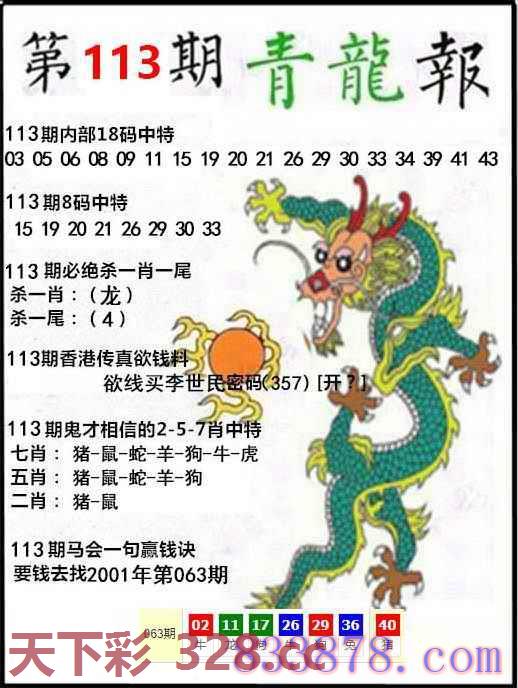 第113期青龍報
113期内部18码中特
03 05 06 08 09 11 15 19 20 21 26 29 30 33 34 39 41 43
113期8码中特
15 19 20 21 26 29 30 33
113期必绝杀一肖一尾
杀一肖：(龙)
杀一尾：(4)
113期香港传真欲钱料
欲线买李世民密码(357) [开？]
113期鬼才相信的2-5-7肖中特
七肖：猪-鼠-蛇-羊-狗-牛-虎
五肖：猪-鼠-蛇-羊-狗
二肖：猪-鼠
113期马会一句赢钱诀
要钱去找2001年第063期
063期 02 11 17 26 29 36 40
牛 龙 狗 牛 狗 兔 猪
天下彩 328.cc